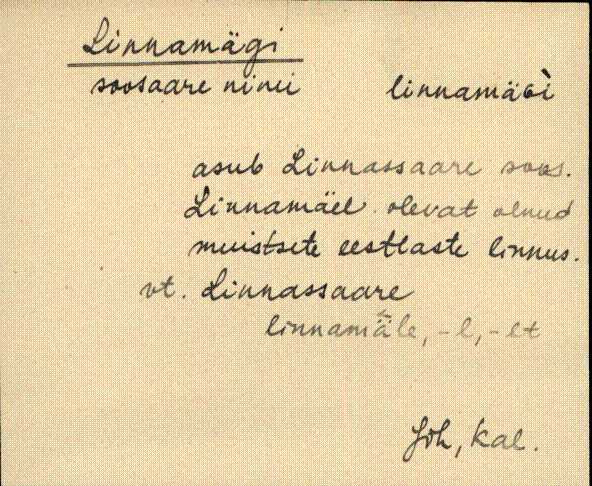 Linnamägi
soosaare nimi linnamäGi
asub Linnassaare soos.
Linnamäel olevat olnud
muistsete eestlaste linnus.
vt. Linnassaare
linnamä̀le, -l, -lt
Jõh, Kal.